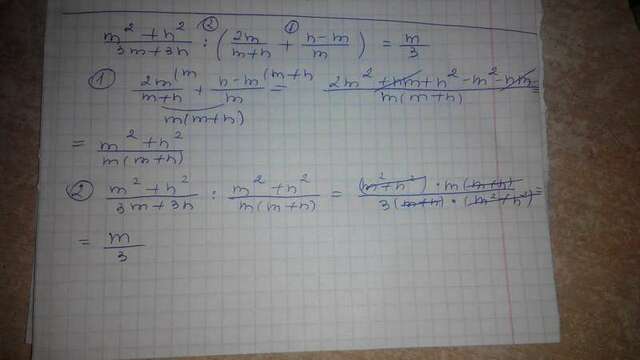 (m² + n²)/(3m + 3n) : (2m/(m+n) + (n−m)/m) = m/3 ② ①
① 2m(m/(m+n) + (n−m(m+n)/m = (2m² + nm + n² − m² − nm)/(m(m+n)) =
m(m+n)
= (m² + n²)/(m(m+n))
② (m² + n²)/(3m + 3n) : (m² + n²)/(m(m+n)) = ((m² + n²) · m(m+n))/(3(m+n) · (m² + n²)) =
= m/3